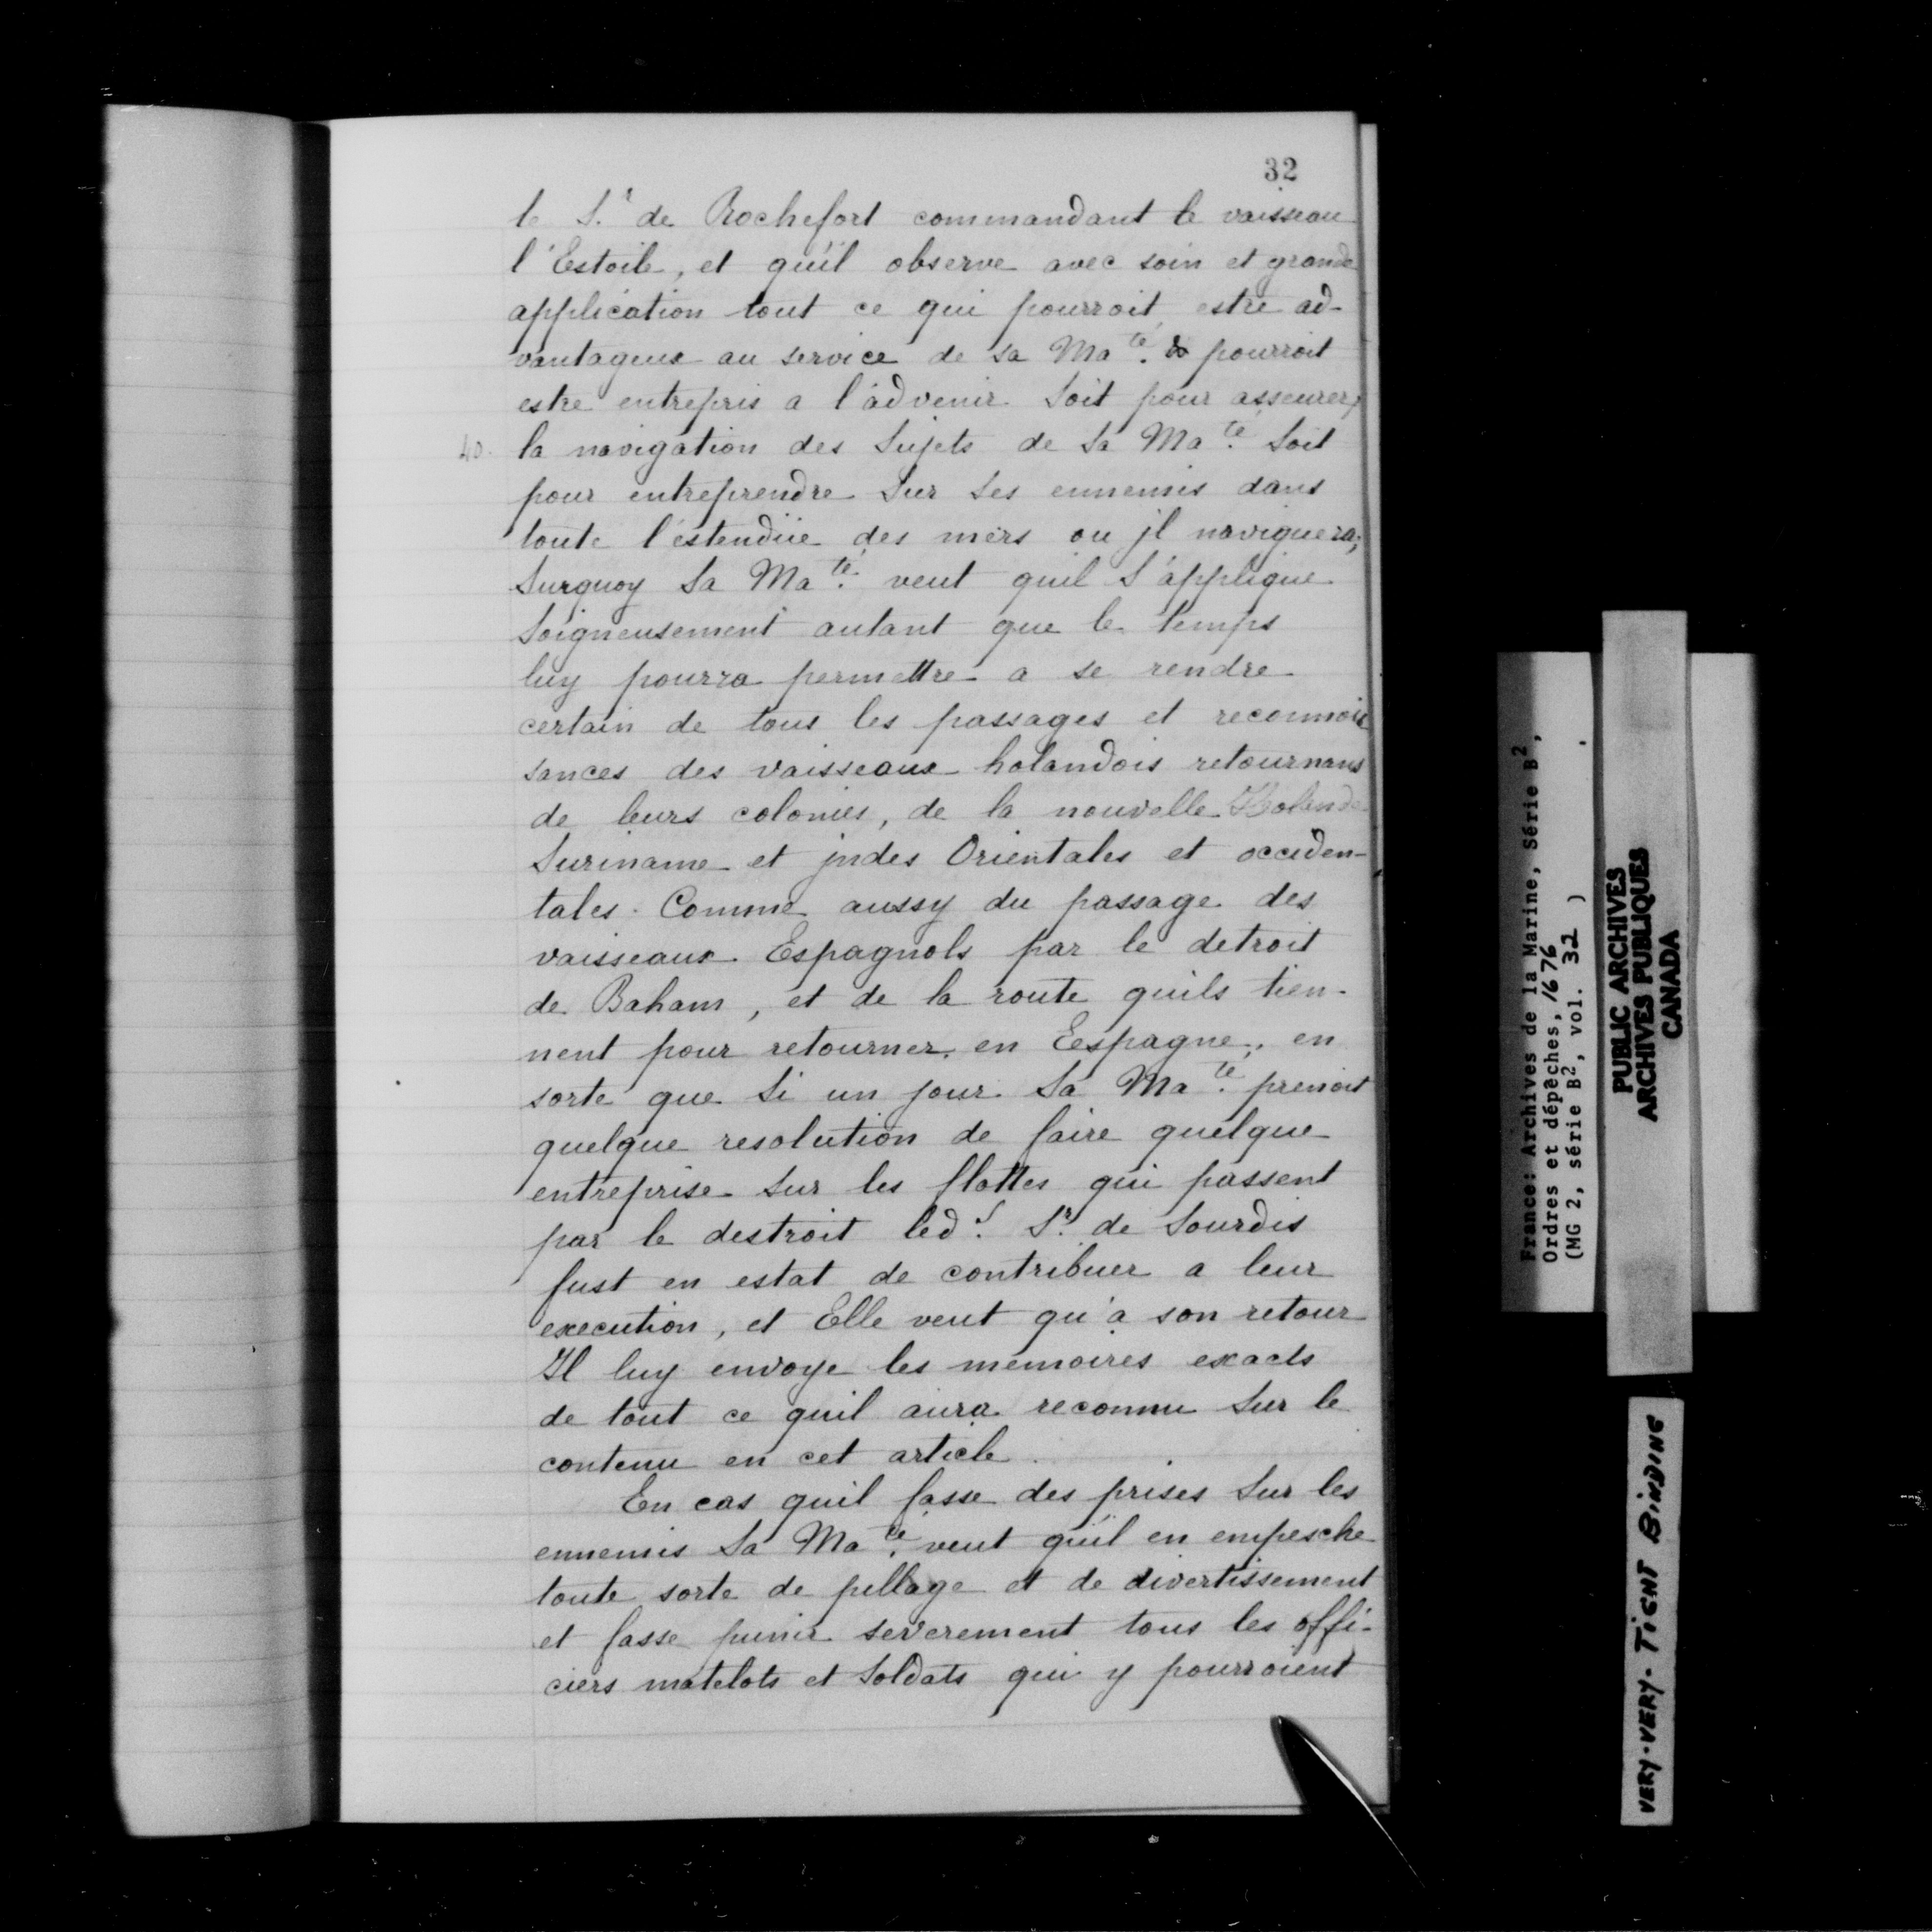 32
le S.r de Rochefort commandant le vaisseau
l'Estoile, et qu'il observe avec soin et grande
application tout ce qui pourroit estre ad-
vantageux au service de sa Ma.té & pourroit
estre entrepris a l'advenir Soit pour asseurer
40. la navigation des Sujets de Sa Ma.té Soit
pour entreprendre Sur Ses ennemis dans
toute l'estendüe des mers ou jl naviguera,
Surquoy Sa Ma.té veut quil S'applique
Soigneusement autant que le temps
luy pourra permettre a se rendre
certain de tous les passages et reconnois
sances des vaisseaux holandois retournans
de leurs colonies, de la nouvelle Holande
Suriname et jndes Orientales et occiden-
tales. Comme aussy du passage des
vaisseaux Espagnols par le detroit
de Baham, et de la route quils tien-
nent pour retourner en Espagne, en
sorte que Si un jour Sa Ma.té prenoit
quelque resolution de faire quelque
entreprise Sur les flottes qui passent
par le destroit led. S.r de Sourdis
fust en estat de contribuer a leur
execution, et Elle veut qu'a son retour
Il luy envoye les memoires exacts
de tout ce quil aura reconnu Sur le
contenu en cet article.
En cas quil fasse des prises Sur les
ennemis Sa Ma.té veut quil en empesche
toute sorte de pillage et de divertissement
et fasse punir severement tous les offi-
ciers matelots et Soldats qui y pourroient
France: Archives de la Marine, Série B2,
Ordres et dépêches, 1676
(MG 2, série B2, vol. 32 )
PUBLIC ARCHIVES
ARCHIVES PUBLIQUES
CANADA
VERY-VERY-TIGHT BINDING